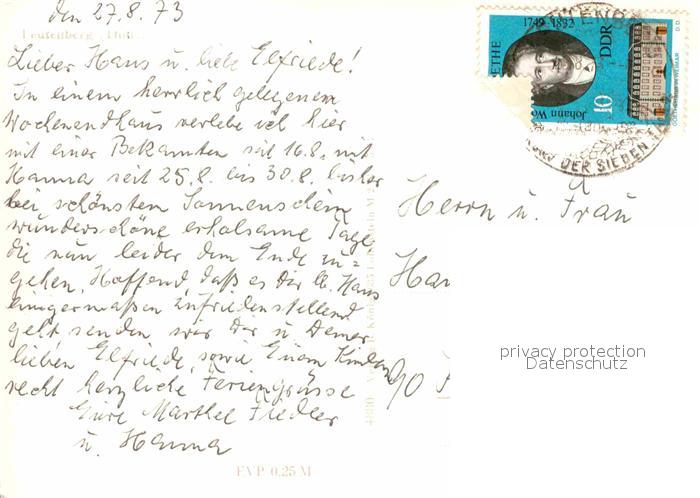 den 27.8.73
Leutenberg
Lieber Hans u. liebe Elfriede!
In einem herrlich gelegenem
Wochenendhaus verlebe ich hier
mit einer Bekannten seit 16.8. mit
Hanna seit 25.8. bis 30.8. bisher
bei schönstem Sonnenschein
wunderschöne erholsame Tage,
die nun leider dem Ende zu=
gehen. Hoffend, daß es Dir lb. Hans
einigermaßen zufriedenstellend
geht senden wir Dir u. Deiner
lieben Elfriede, sowie Euren Kindern
recht herzliche Feriengrüsse
Eure Marthel Fiedler
u. Hanna
EVP 0,25 M
1749-1832
DDR
ETHE
Johann Wo
10
DER SIEBEN
Herrn u. Frau
Har
90
privacy protection
Datenschutz